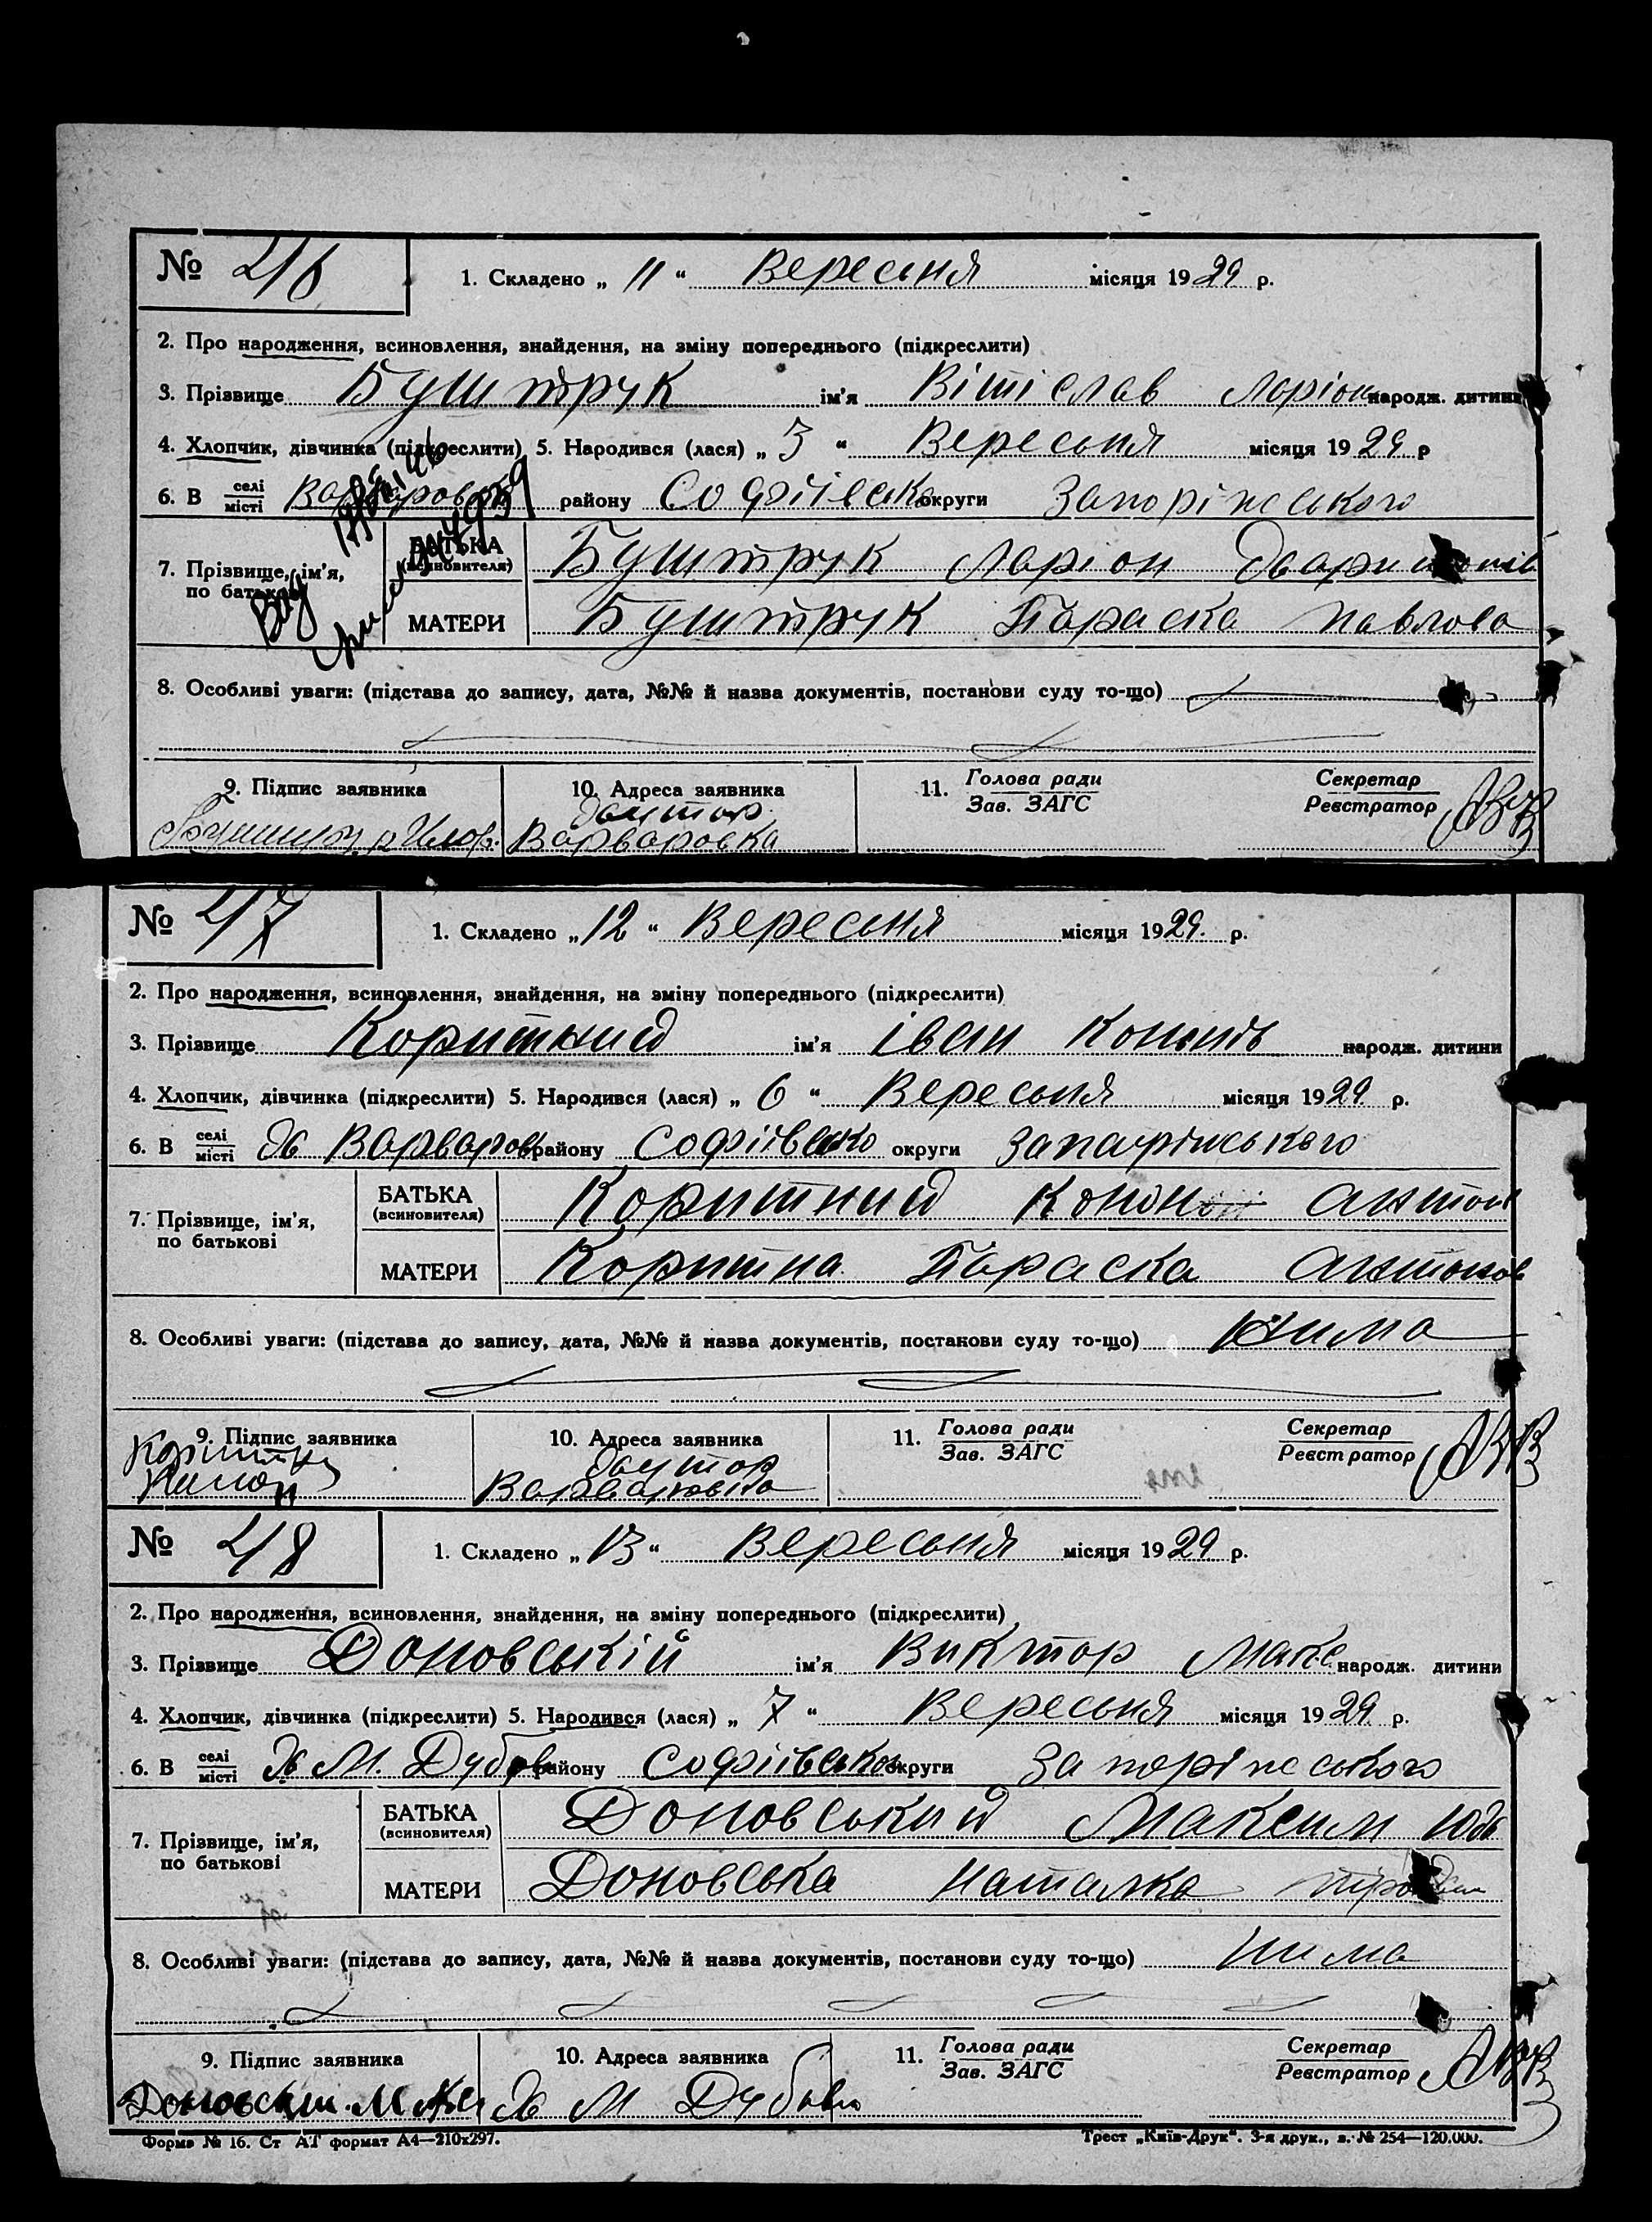 № 46 1. Складено „ 11 “ Вересьня місяця 1929 р.
2. Про народження, всиновлення, знайдення, на зміну попереднього (підкреслити)
3. Прізвище Буштрук ім'я Вітіслав Ларіон народж. дитини
4. Хлопчик, дівчинка (підкреслити) 5. Народився (лася) „ 3 “ Вересьня місяця 1929 р
6. В селі/місті Варваровка району Софіівсько округи Запоріжського
7. Прізвище, ім'я, по батькові
БАТЬКА (всиновителя) Буштрук Ларіон
МАТЕРИ Буштрук Параска Павлова
8. Особливі уваги: (підстава до запису, дата, №№ й назва документів, постанови суду то-що)
9. Підпис заявника 10. Адреса заявника 11. Голова ради Секретар
Зав. ЗАГС Реєстратор
Варваровка
№ 47 1. Складено „ 12 “ Вересьня місяця 1929. р.
2. Про народження, всиновлення, знайдення, на зміну попереднього (підкреслити)
3. Прізвище Коритний ім'я Іван народж. дитини
4. Хлопчик, дівчинка (підкреслити) 5. Народився (лася) „ 6 “ Вересьня місяця 1929 р.
6. В селі/місті Варваровк району Софіівсько округи Запаріжського
7. Прізвище, ім'я, по батькові
БАТЬКА (всиновителя) Коритний Конон Антон
МАТЕРИ Коритна Параска Антонов
8. Особливі уваги: (підстава до запису, дата, №№ й назва документів, постанови суду то-що) Нима
9. Підпис заявника 10. Адреса заявника 11. Голова ради Секретар
Зав. ЗАГС Реєстратор
Варваровка
№ 48 1. Складено „ 13 “ Вересьня місяця 1929 р.
2. Про народження, всиновлення, знайдення, на зміну попереднього (підкреслити)
3. Прізвище Доновський ім'я Виктор Макс народж. дитини
4. Хлопчик, дівчинка (підкреслити) 5. Народився (лася) „ 7 “ Вересьня місяця 1929 р.
6. В селі/місті Х М. Дубове району Софіівсько округи Запоріжського
7. Прізвище, ім'я, по батькові
БАТЬКА (всиновителя) Доновський Максим
МАТЕРИ Доновська Наталка
8. Особливі уваги: (підстава до запису, дата, №№ й назва документів, постанови суду то-що) Нима
9. Підпис заявника 10. Адреса заявника 11. Голова ради Секретар
Зав. ЗАГС Реєстратор
Х М Дубове
Форма № 16. Ст АТ формат А4—210х297. Трест „Київ-Друк“. 3-я друк., з. № 254—120.000.